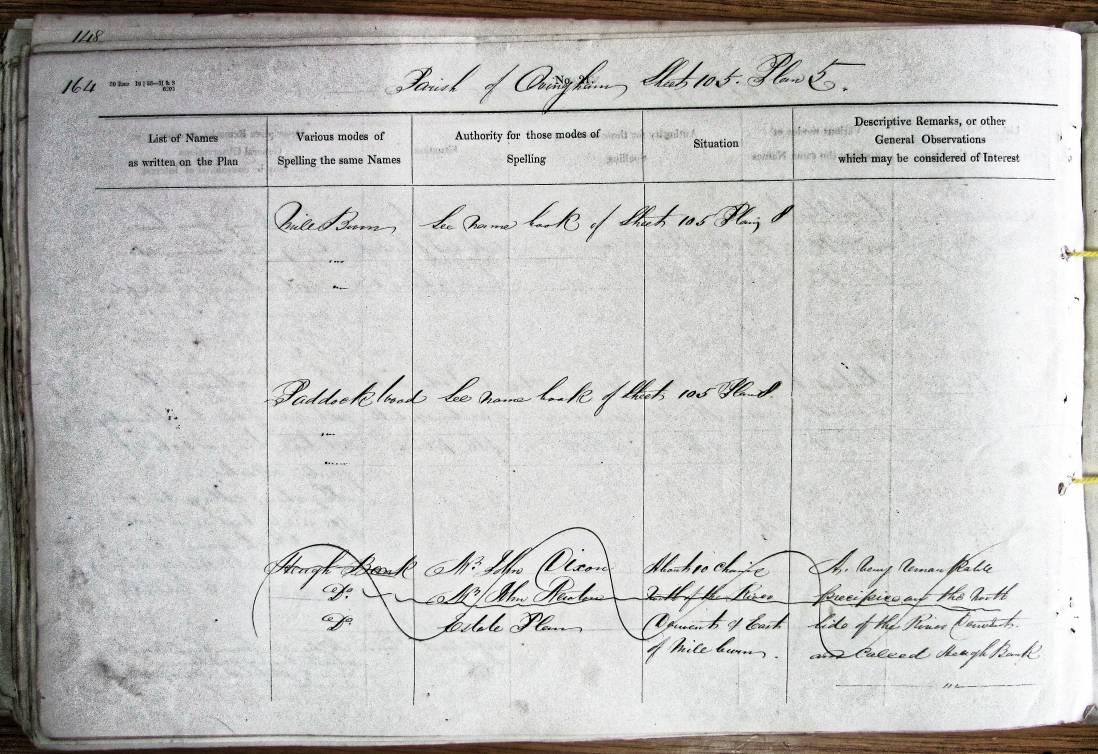 148
164
Parish of Ovingham Sheet 105. Plan 5.
No. 21.
List of Names
as written on the Plan
Various modes of
Spelling the same Names
Authority for those modes of
Spelling
Situation
Descriptive Remarks, or other
General Observations
which may be considered of Interest
Mile Burn See name book of Sheet 105 Plan 8
Paddock Wood See name book of Sheet 105 Plan 8.
Heugh Bank Mr. John Dixon About 10 Chains A very remarkable
Do. Mr John of the River Precipice on the North
Do. Estate Plan Derwent & East side of the River Derwent.
of Mile burn. and Called Heugh Bank